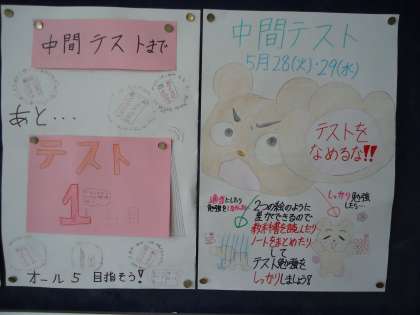 中間テストまで
あと...
テスト
1
オール5 目指そう!
中間テスト
5月28(火)・29(水)
テストを
なめるな!!
しっかり勉強
したら…
2つの絵のように
差がでるので
教科書を読んだり
ノートをまとめたり
して
テスト勉強を
しっかりしましょう!